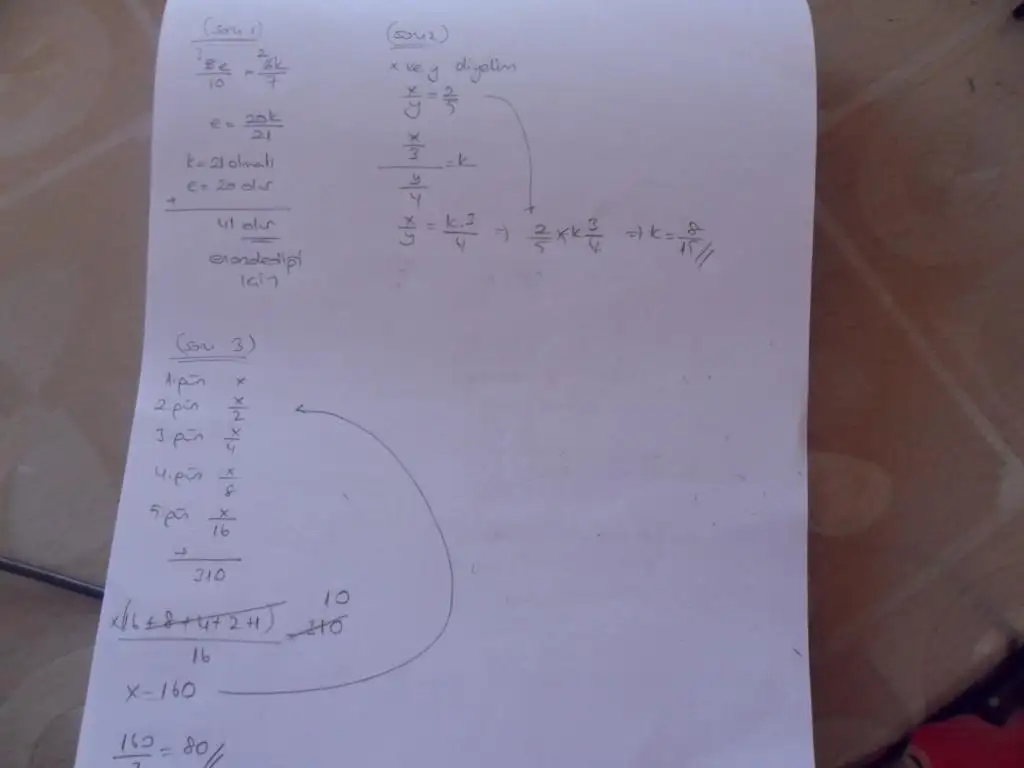 (soru 1)
e = 20k/21
k = 21 olmalı
e = 20 olur
+
41 olur
(soru 2)
x ve y diyelim
x/y = 2/5
x/3 / y/4 = k
x/y = k.3/4 => 2/5 x k 3/4 => k = 8/15 //
(soru 3)
1.gün x
2 gün x/2
3 gün x/4
4.gün x/8
5 gün x/16
+
310
x(16+8+4+2+1)/16 = 310 10
x = 160
160/2 = 80 //